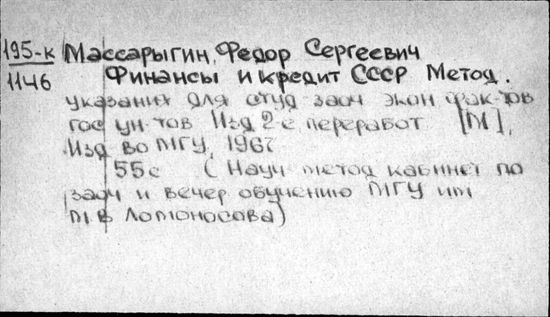 195-к Массарыгин, Федор Сергеевич
1146 Финансы и кредит СССР Метод.
указания для студ заоч экон фак-тов
гос ун-тов Изд 2-е переработ [М],
Изд во МГУ, 1967
55 с (Науч метод кабинет по
заоч и вечер обучению МГУ им
М В Ломоносова)